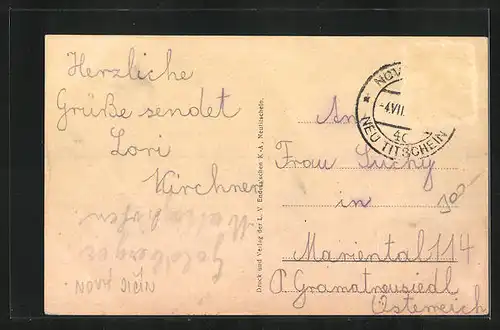 Herzliche
Grüße sendet
Lori
Kirchner
NOVÝ JIČÍN
Druck und Verlag der L. V. Enders'schen K.-A., Neutitschein.
NOV
-4.VII.
4c
NEU TITSCHEIN
An
Frau Suchy
in
Mariental 114
P. Gramatneusiedl
Österreich
300-